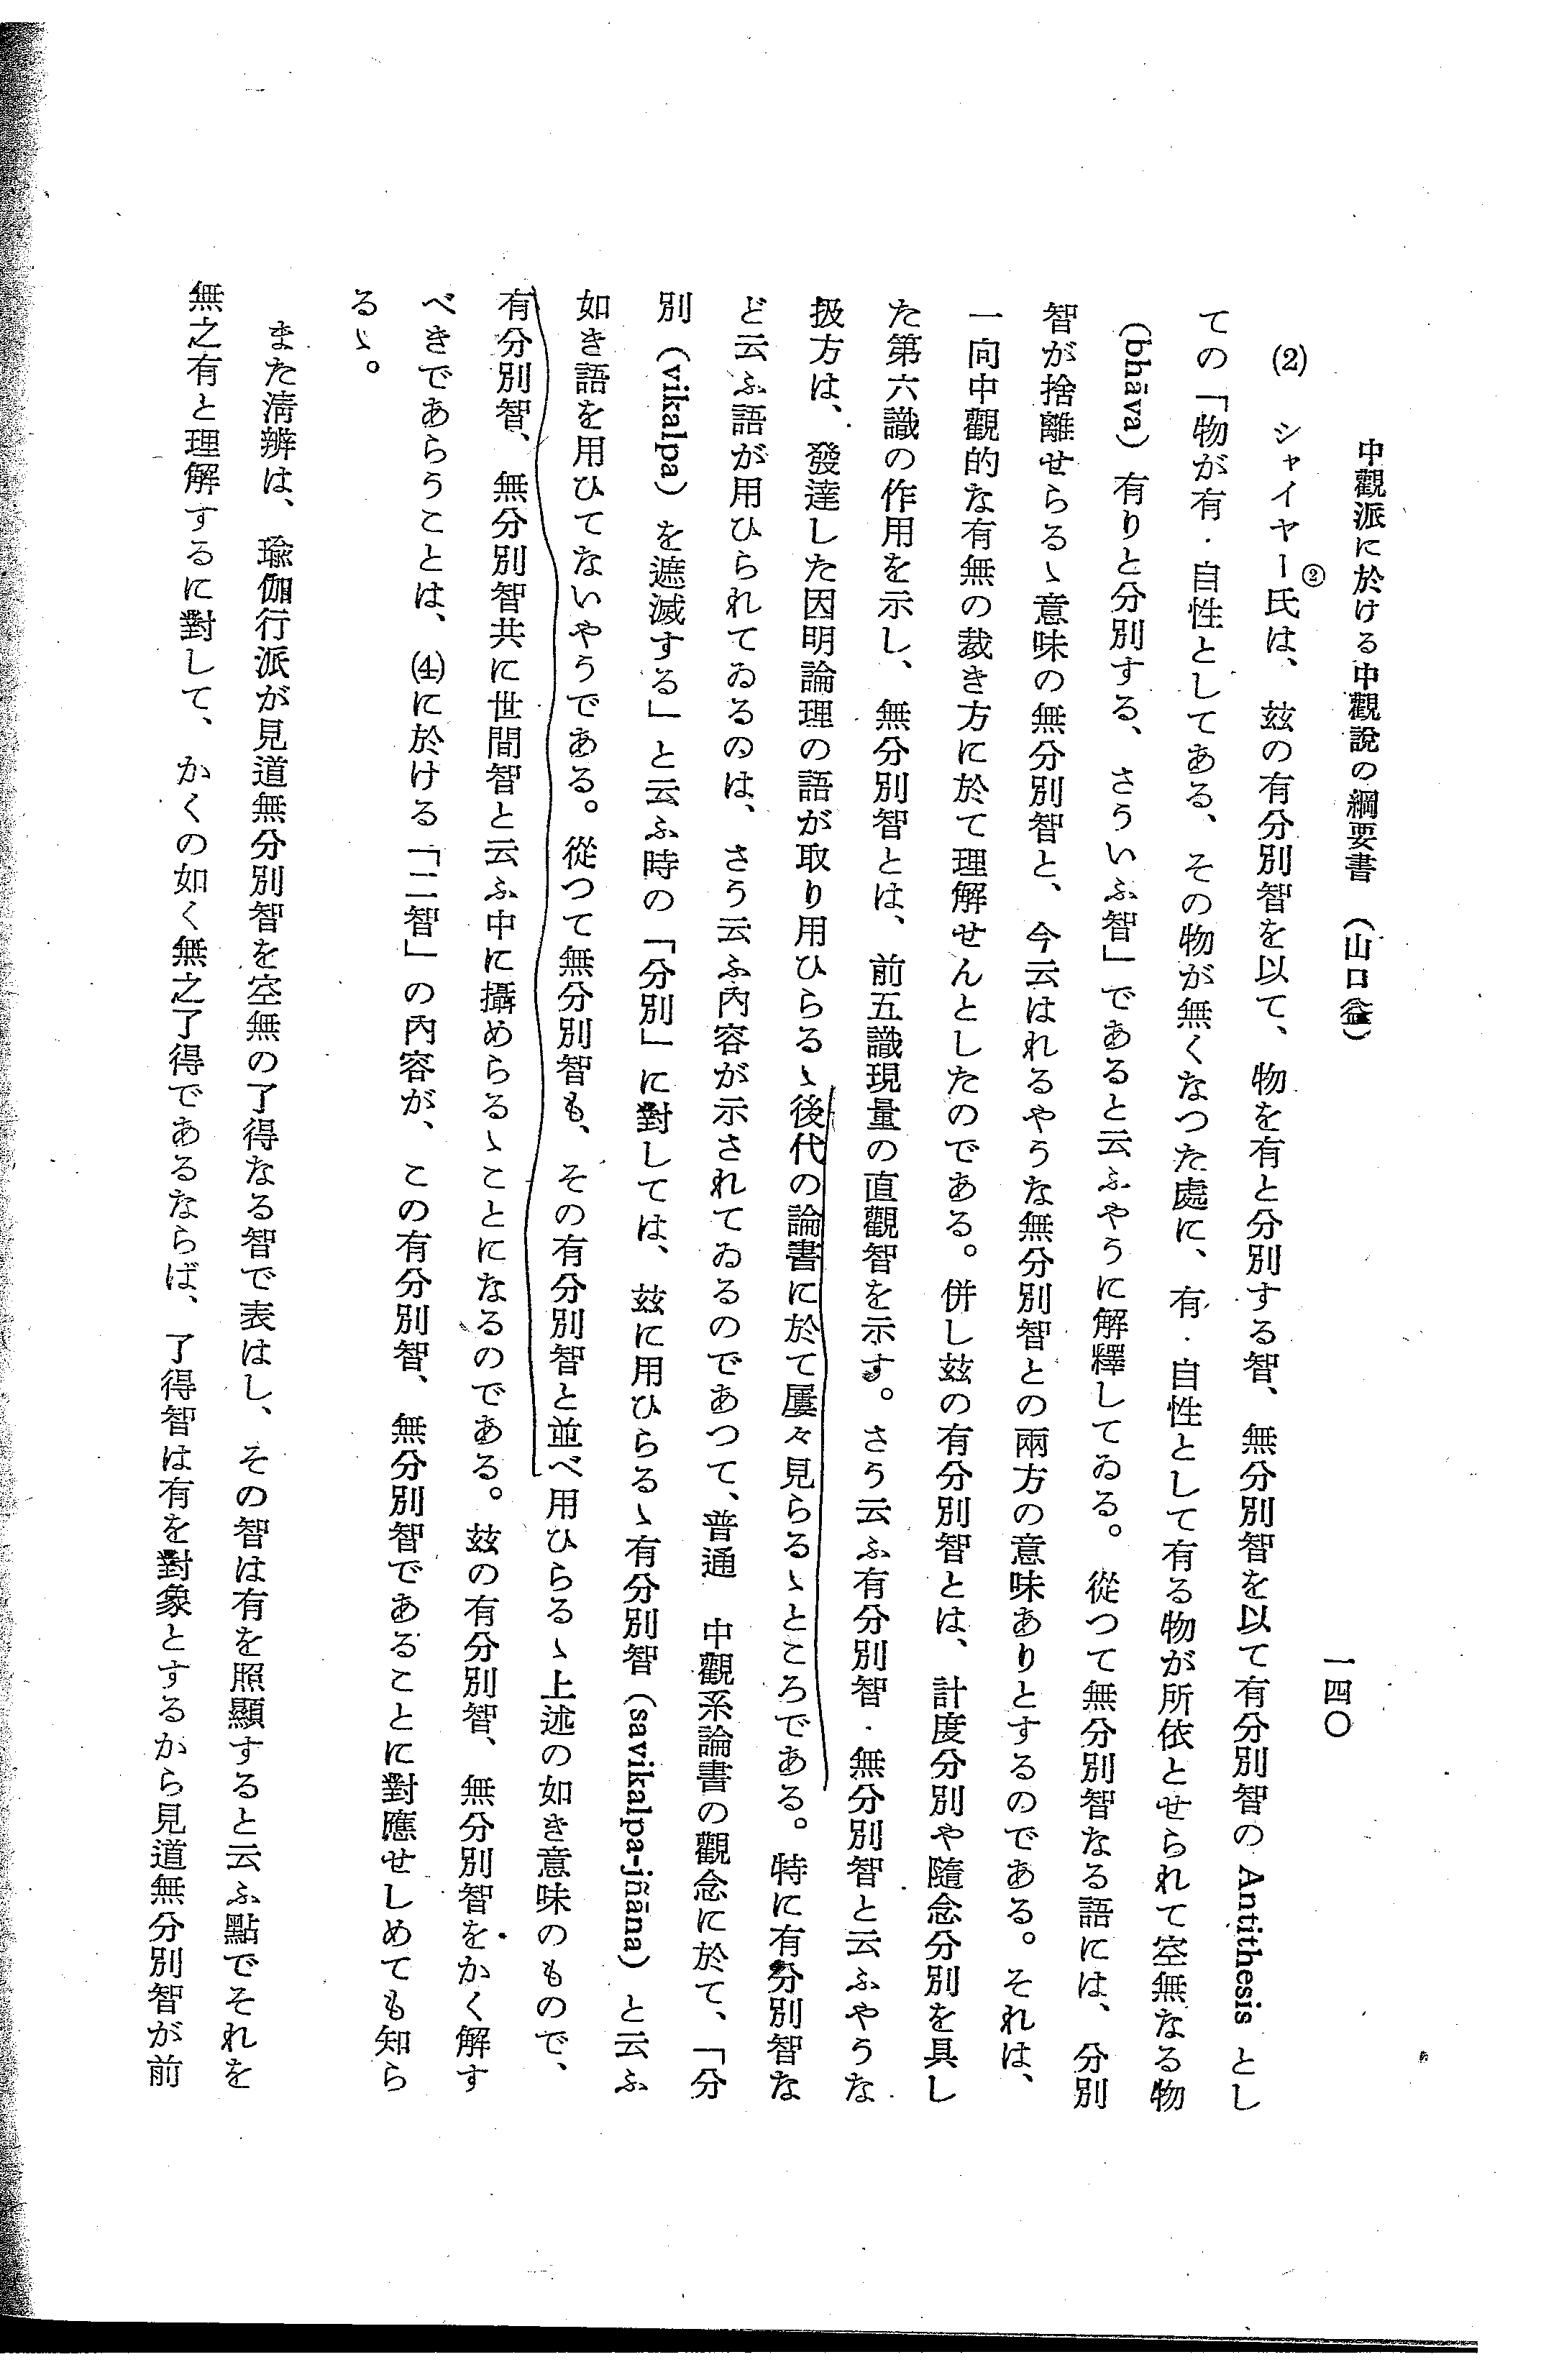 中觀派に於ける中觀說の綱要書 (山口益)
一四〇
(2) シャイヤー②氏は、玆の有分別智を以て、物を有と分別する智、無分別智を以て有分別智の Antithesis とし
ての「物が有・自性としてある、その物が無くなつた處に、有・自性として有る物が所依とせられて空無なる物
(bhāva) 有りと分別する、さういふ智」であると云ふやうに解釋してゐる。從つて無分別智なる語には、分別
智が捨離せらるゝ意味の無分別智と、今云はれるやうな無分別智との兩方の意味ありとするのである。それは、
一向中觀的な有無の裁き方に於て理解せんとしたのである。併し玆の有分別智とは、計度分別や隨念分別を具し
た第六識の作用を示し、無分別智とは、前五識現量の直觀智を示す。さう云ふ有分別智・無分別智と云ふやうな
扱方は、發達した因明論理の語が取り用ひらるゝ後代の論書に於て屢々見らるゝところである。特に有分別智な
ど云ふ語が用ひられてゐるのは、さう云ふ內容が示されてゐるのであつて、普通 中觀系論書の觀念に於て、「分
別 (vikalpa) を遮滅する」と云ふ時の「分別」に對しては、玆に用ひらるゝ有分別智 (savikalpa-jñāna) と云ふ
如き語を用ひてないやうである。從つて無分別智も、その有分別智と並べ用ひらるゝ上述の如き意味のもので、
有分別智、無分別智共に世間智と云ふ中に攝めらるゝことになるのである。玆の有分別智、無分別智をかく解す
べきであらうことは、(4)に於ける「二智」の內容が、この有分別智、無分別智であることに對應せしめても知ら
るゝ。
また淸辨は、瑜伽行派が見道無分別智を空無の了得なる智で表はし、その智は有を照顯すると云ふ點でそれを
無之有と理解するに對して、かくの如く無之了得であるならば、了得智は有を對象とするから見道無分別智が前